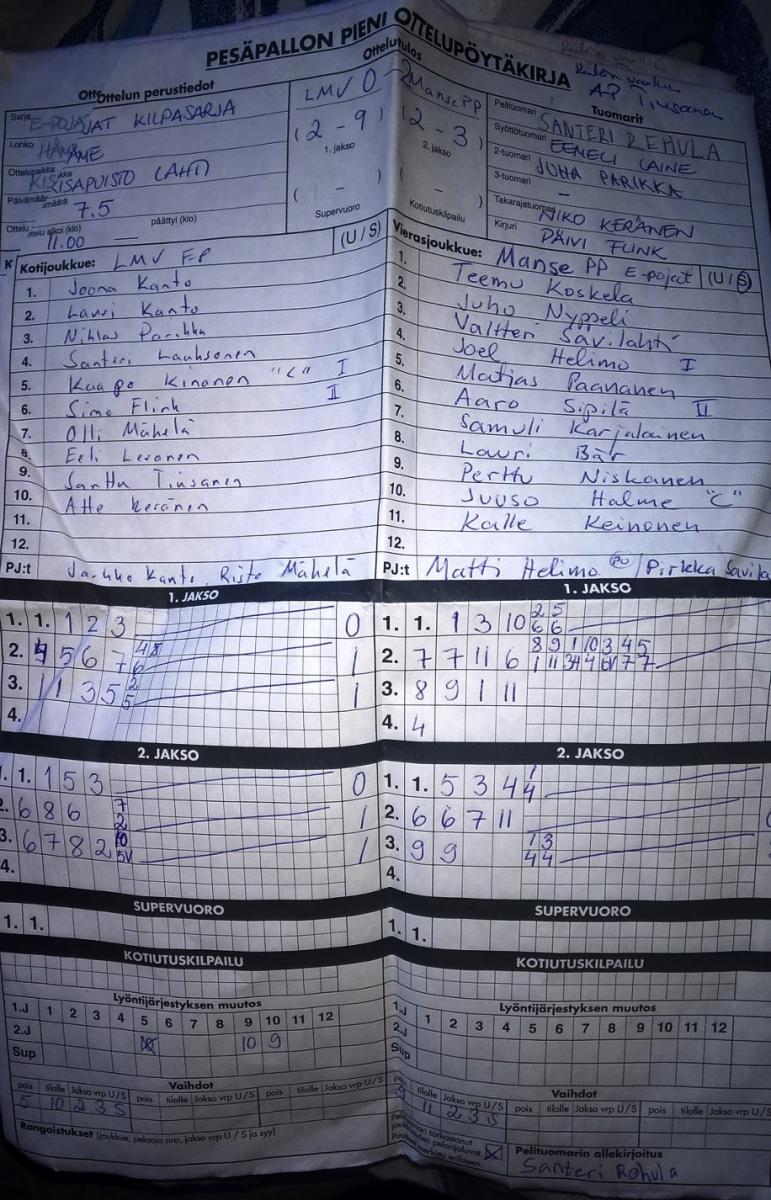 PESÄPALLON PIENI OTTELUPÖYTÄKIRJA
Ottelun perustiedot
Ottelutulos
AP Tiusanen
Tuomarit
Sarja E-POJAT KILPASARJA
Lohko HÄME
Ottelupaikka KISAPUISTO LAHTI
Päivämäärä 7.5
Ottelu alkoi (klo) 11.00 päättyi (klo)
LMV 0 - 2 Manse PP
(2 - 9) (2 - 3)
1. jakso 2. jakso
( - ) ( - )
Supervuoro Kotiutuskilpailu
Pelituomari SANTERI REHULA
Syöttötuomari EEMELI LAINE
2-tuomari JUHA PARIKKA
3-tuomari -
Takarajatuomari NIKO KERÄNEN
Kirjuri PÄIVI FUNK
Kotijoukkue: LMV EP (U / S)
1. Joona Kanto
2. Lauri Kanto
3. Niklas Parikka
4. Santeri Laaksonen
5. Kaapo Kinanen "C" I
6. Simo Flink II
7. Olli Mähelä
8. Eeli Leranen
9. Santtu Tiusanen
10. Atte Keränen
11.
12.
PJ:t Jarkko Kanto, Risto Mähelä
Vierasjoukkue: Manse PP E-pojat (U / S)
1. Teemu Koskela
2. Juho Nyppeli
3. Valtteri Savilahti
4. Joel Helimo I
5. Matias Paananen
6. Aaro Sipilä II
7. Samuli Karjalainen
8. Lauri Bär
9. Perttu Niskanen
10. Juuso Halme "C"
11. Kalle Keinonen
12.
PJ:t Matti Helimo PO / Pirkka Savila
1. JAKSO
1. 1. 1 2 3 0
2. 4 5 6 7 1
3. 1 1 3 5 2 5 1
4.
1. JAKSO
1. 1. 1 3 10 2 5 6 6
2. 7 7 11 6 8 9 1 10 3 4 5
3. 8 9 1 11
4. 4
2. JAKSO
1. 1. 1 5 3 0
2. 6 8 6 7 2 1
3. 6 7 8 2 10 1
4.
2. JAKSO
1. 1. 5 3 4 1 4
2. 6 6 7 11
3. 9 9 1 3 4 4
4.
SUPERVUORO
1. 1.
SUPERVUORO
1. 1.
KOTIUTUSKILPAILU
KOTIUTUSKILPAILU
Lyöntijärjestyksen muutos
1.J 1 2 3 4 5 6 7 8 9 10 11 12
2.J 10 9
Sup
Lyöntijärjestyksen muutos
1.J 1 2 3 4 5 6 7 8 9 10 11 12
2.J
Sup
Vaihdot
pois tilalle Jakso vrp U / S pois tilalle Jakso vrp U / S pois tilalle Jakso vrp U / S
5 10 2 3 S
Vaihdot
tilalle Jakso vrp U / S pois tilalle Jakso vrp U / S pois tilalle Jakso vrp U / S
9 11 2 3 S
Rangaistukset (joukkue, pelaaja nro, jakso vrp U / S ja syy)
Pelituomarin allekirjoitus
Santeri Rehula